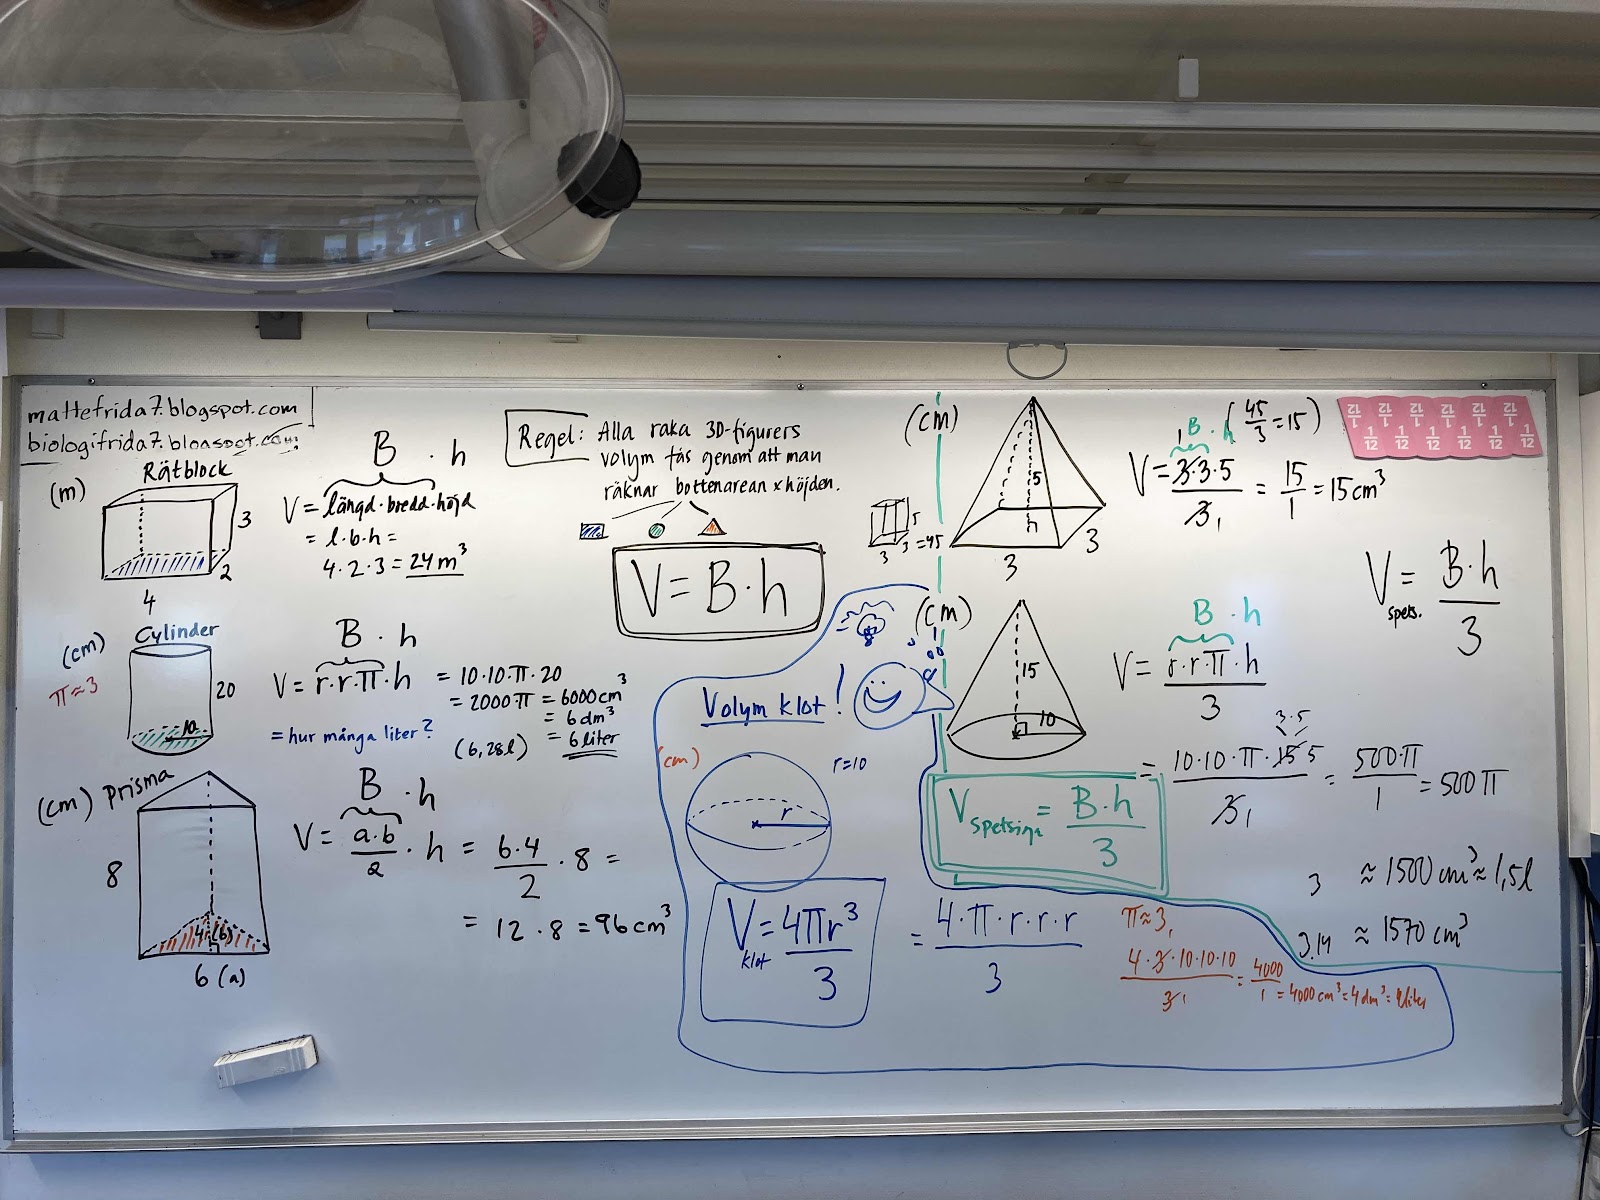 mattefrida7.blogspot.com
biologifrida7.blogspot.com
Rätblock
(m)
3
2
4
B · h
V = längd·bredd·höjd
= l·b·h =
4·2·3 = 24 m³
Cylinder
(cm)
π≈3
20
10
B · h
V = r·r·π·h = 10·10·π·20
= 2000·π = 6000 cm³
= 6 dm³
= 6 liter
= hur många liter?
(6,28 l)
(cm) Prisma
8
4 (b)
6 (a)
B · h
V = a·b/2 · h = 6·4/2 · 8 =
= 12·8 = 96 cm³
Regel: Alla raka 3D-figurers
volym fås genom att man
räknar bottenarean x höjden.
V = B·h
Volym klot!
(cm)
r=10
r
V klot = 4πr³/3 = 4·π·r·r·r/3
π≈3
4·3·10·10·10/3 1 = 4000/1 = 4000 cm³ = 4 dm³ = 4 liter
(cm)
5
h
3
3
5
3 3 =45
B · h (45/3 = 15)
V = 3·3·5/3 1 = 15/1 = 15 cm³
V spets. = B·h/3
(cm)
15
10
B · h
V = r·r·π·h/3
3·5
= 10·10·π·15 5/3 1 = 500·π/1 = 500π
3 ≈ 1500 cm³ ≈ 1,5 l
3,14 ≈ 1570 cm³
V spetsiga = B·h/3
1/12 1/12 1/12 1/12 1/12 1/12
1/12 1/12 1/12 1/12 1/12 1/12